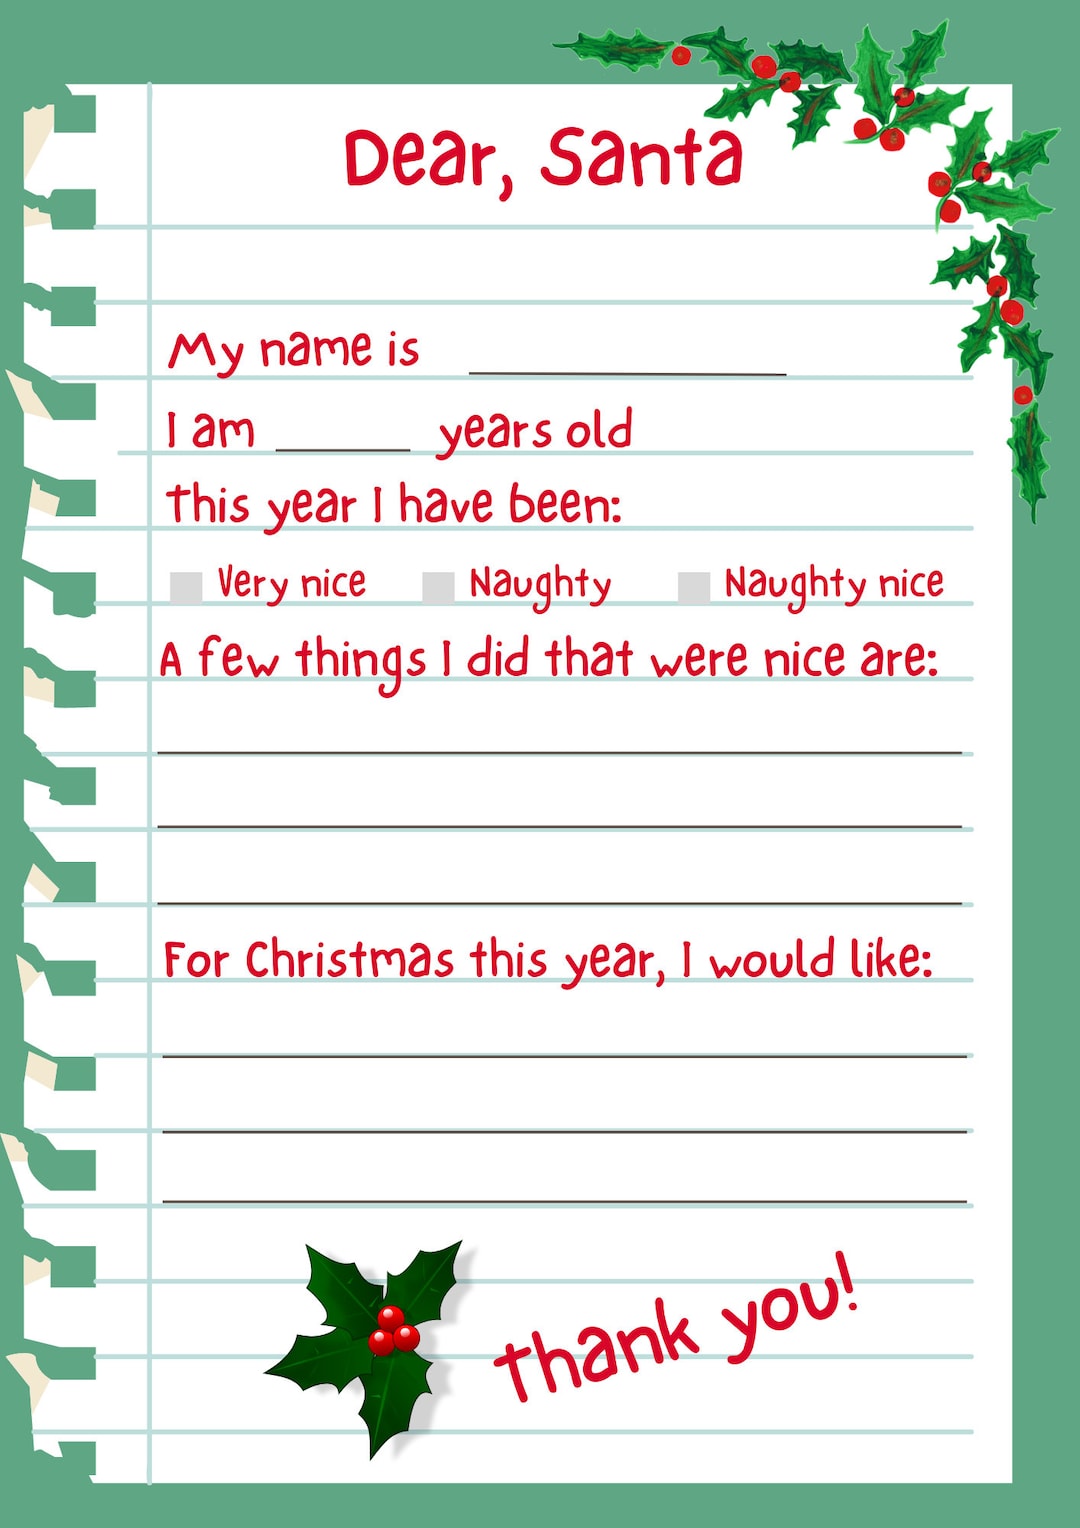 Dear, Santa
My name is
I am years old
This year I have been:
Very nice Naughty Naughty nice
A few things I did that were nice are:
For Christmas this year, I would like:
thank you!